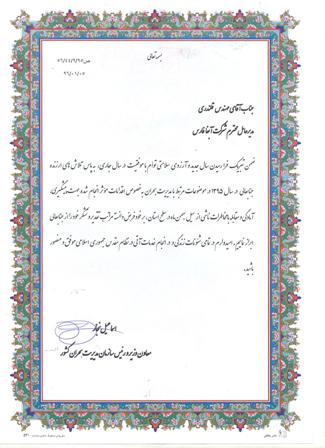 بسمه تعالی
ص/۵۶/۴۴/۶/۹۵
۹۶/۰۱/۰۵
جناب آقای مهندس قلندری
مدیرعامل محترم شرکت آبفا فارس
ضمن تبریک فرا رسیدن سال جدید و آرزوی سلامتی توأم با موفقیت در سال جاری، به پاس تلاش های ارزنده
جنابعالی در سال ۱۳۹۵ در موضوعات مرتبط با مدیریت بحران به خصوص اقدامات موثر انجام شده جهت پیشگیری،
آمادگی و مقابله با مخاطرات ناشی از سیل بهمن ماه در سطح استان، بر خود فرض دانسته مراتب تقدیر و تشکر خود را از جنابعالی
ابراز نمایم. امیدوارم در تمامی شئونات زندگی و در انجام خدمات آتی در نظام مقدس جمهوری اسلامی موفق و منصور
باشید.
اسماعیل نجار
معاون وزیر و رئیس سازمان مدیریت بحران کشور